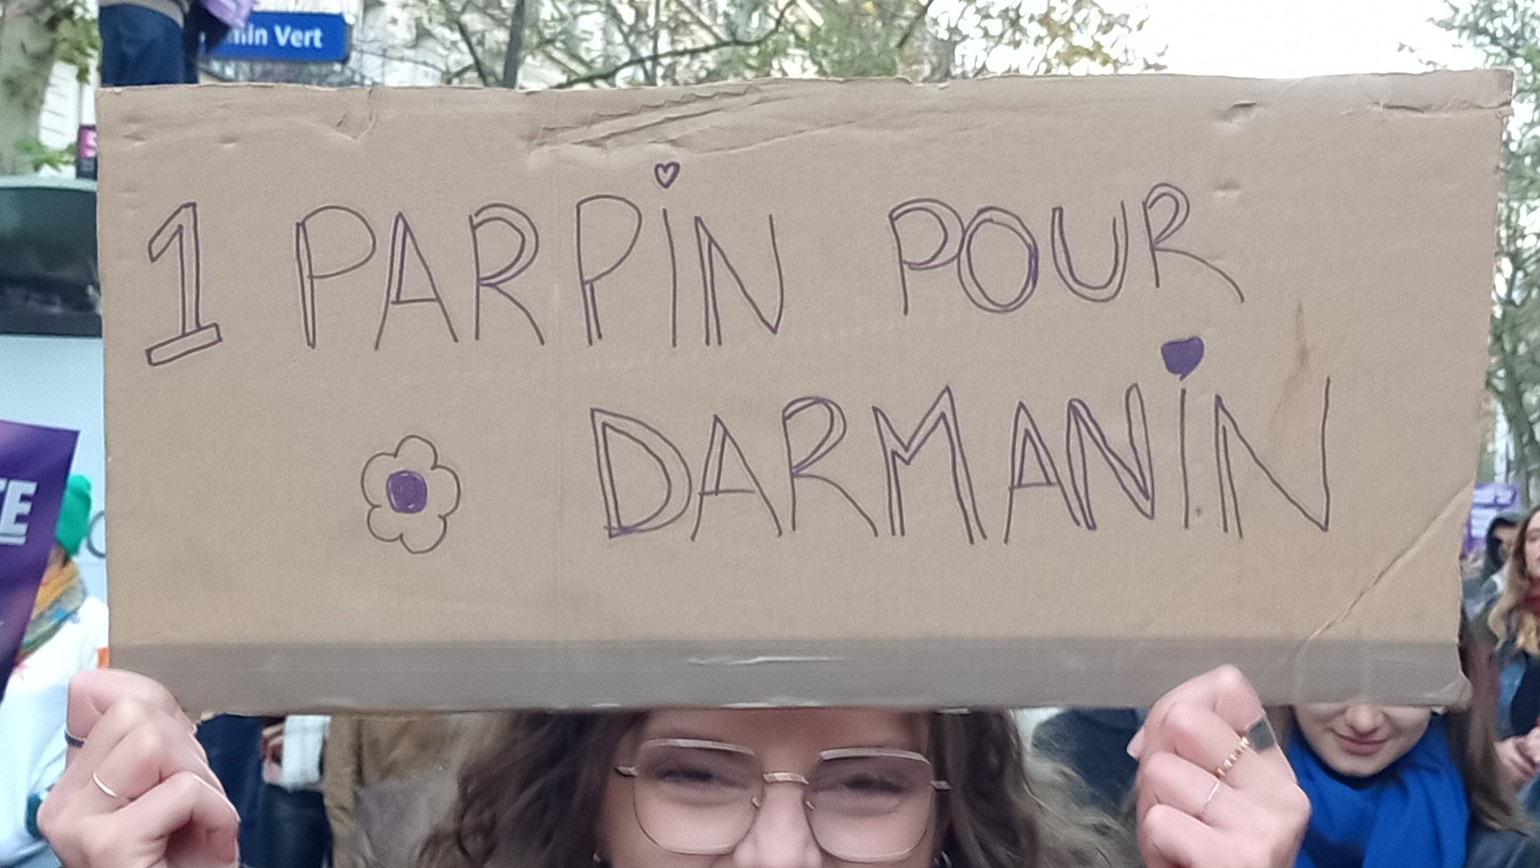 min Vert
1 PARPIN POUR
DARMANIN